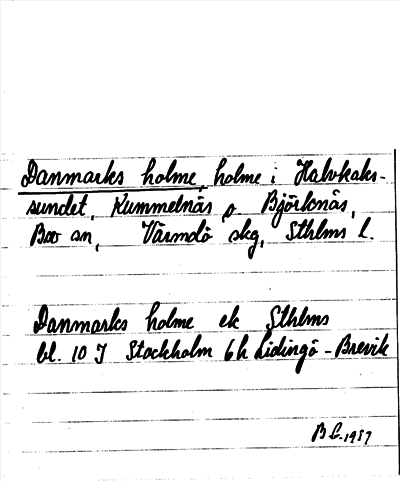 Danmarks holme, holme i Halvkaks-
sundet, Kummelnäs o Björknäs,
Boo sn, Värmdö skg, Sthlms l.
Danmarks holme ek Sthlms
bl. 10 I Stockholm 6h Lidingö - Brevik
1957